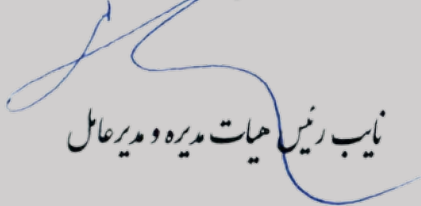 نایب رئیس هیات مدیره و مدیرعامل